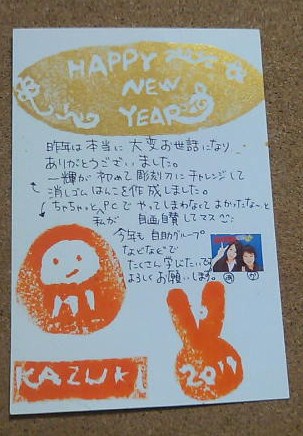 HAPPY
NEW
YEAR
昨年は本当に大変お世話になり
ありがとうございました。
一輝が初めて彫刻刀にチャレンジして
消しゴムはんこを作成しました。
ちゃちゃっとPCでやってしまわなくてよかったな〜と
私が 自画自賛してマス
今年も自助グループ
などなどで
たくさん学びたいです
よろしくお願いします。
KAZUKI
2011